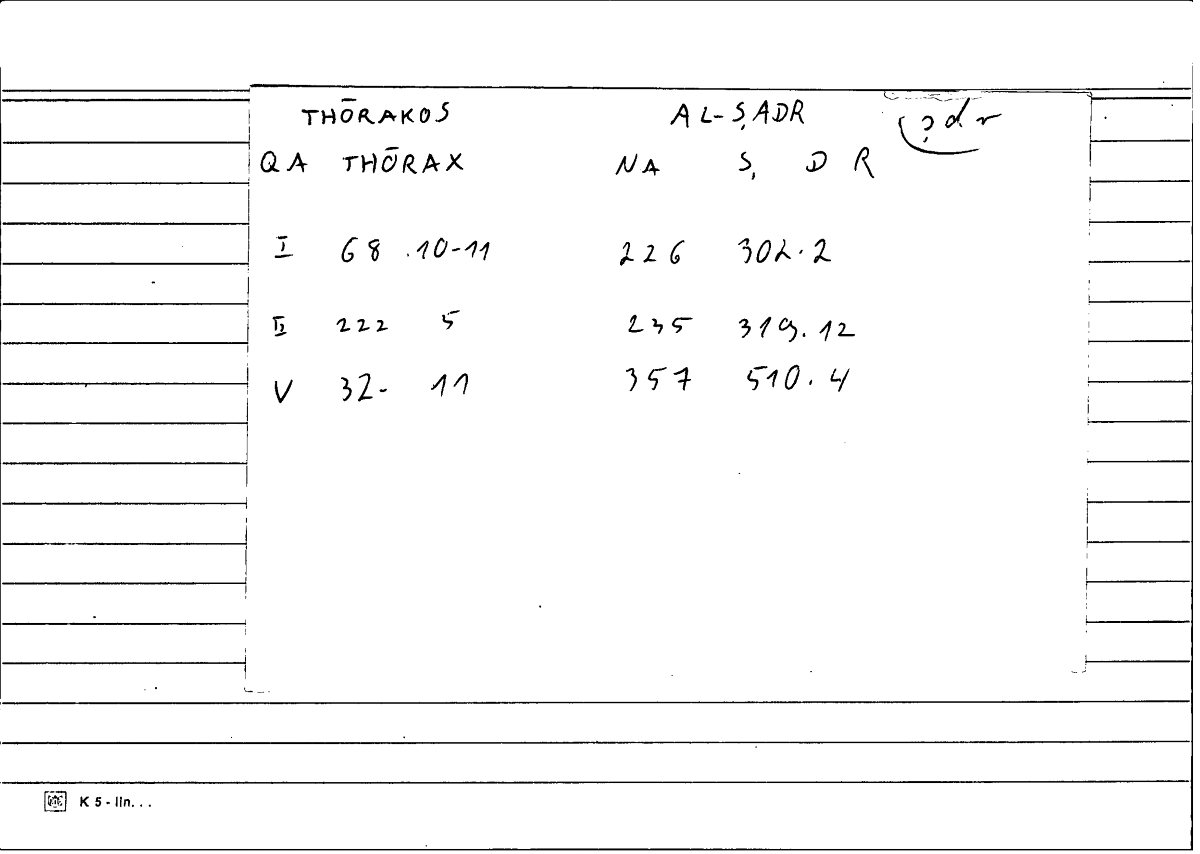 THŌRAKOS AL-ṢADR ṣdr
QA THŌRAX NA Ṣ D R
I 68.10-11 226 302.2
II 222 5 235 319.12
V 32- 11 357 510.4
K 5 - lin...